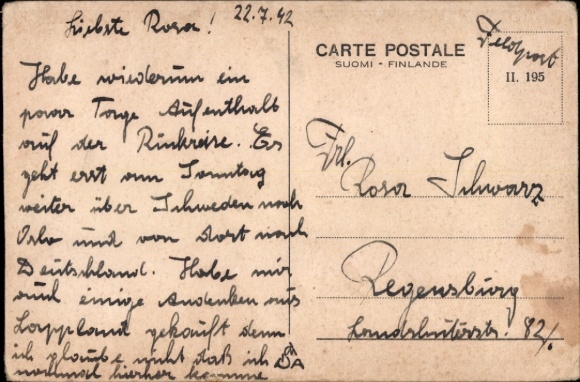 22.7.42
Liebste Rosa!
Habe wiederum ein
paar Tage Aufenthalt
auf der Rückreise. Es
geht erst am Sonntag
weiter über Schweden nach
Oslo und von dort nach
Deutschland. Habe mir
auch einige Andenken aus
Lappland gekauft denn
ich glaube nicht daß ich
nochmal hierher komme
CARTE POSTALE
SUOMI - FINLANDE
Feldpost
II. 195
Frl.
Rosa Schwarz
Regensburg
Landshuterstr. 82/.